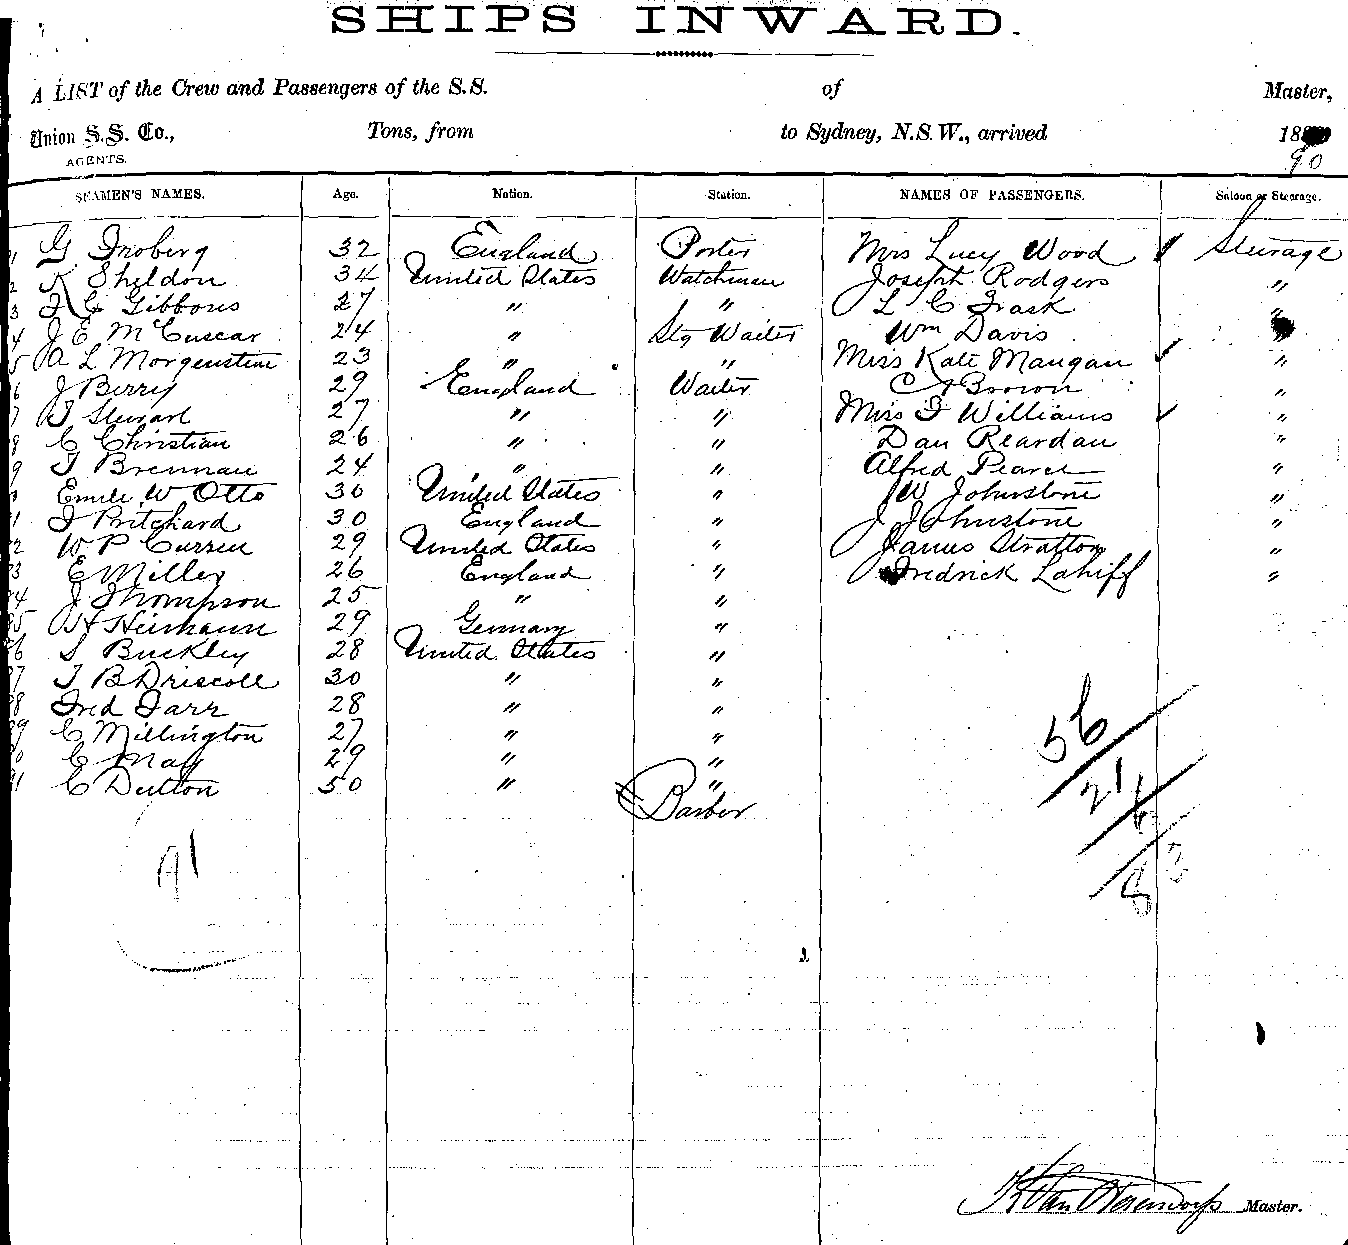 SHIPS INWARD.
A LIST of the Crew and Passengers of the S.S. of Master,
Union S.S. Co., Tons, from to Sydney, N.S.W., arrived 18
AGENTS. 90
SEAMEN'S NAMES. Age. Nation. Station. NAMES OF PASSENGERS. Saloon or Steerage.
1 G 32 England Porter Mrs Lucy Wood ✓ Steerage
2 K Sheldon 34 United States Watchman Joseph Rodgers "
3 Gibbons 27 " " L C Trask "
4 J E McCuscar 24 " Stg Waiter Wm Davis "
5 A L Morgenstine 23 " " Miss Kate Mangan ✓ "
6 J Berry 29 England Waiter Brown "
7 Stewart 27 " " Miss Williams ✓ "
8 C Christian 26 " " Dan Reardan "
9 T Brennan 24 " " Alfred Pearce "
Emile W Otto 30 United States " W Johnstone "
1 J Pritchard 30 England " J Johnstone "
2 W P Curren 29 United States " James Stratton "
3 E Miller 26 England " Fredrick Lahiff "
4 J Thompson 25 " "
5 29 Germany "
6 S Buckley 28 United States "
7 T B Driscoll 30 " "
8 Fred Farr 28 " "
9 C Millington 27 " "
0 C May 29 " "
1 C Dutton 50 " "
Barber
56
21
A1
Master.